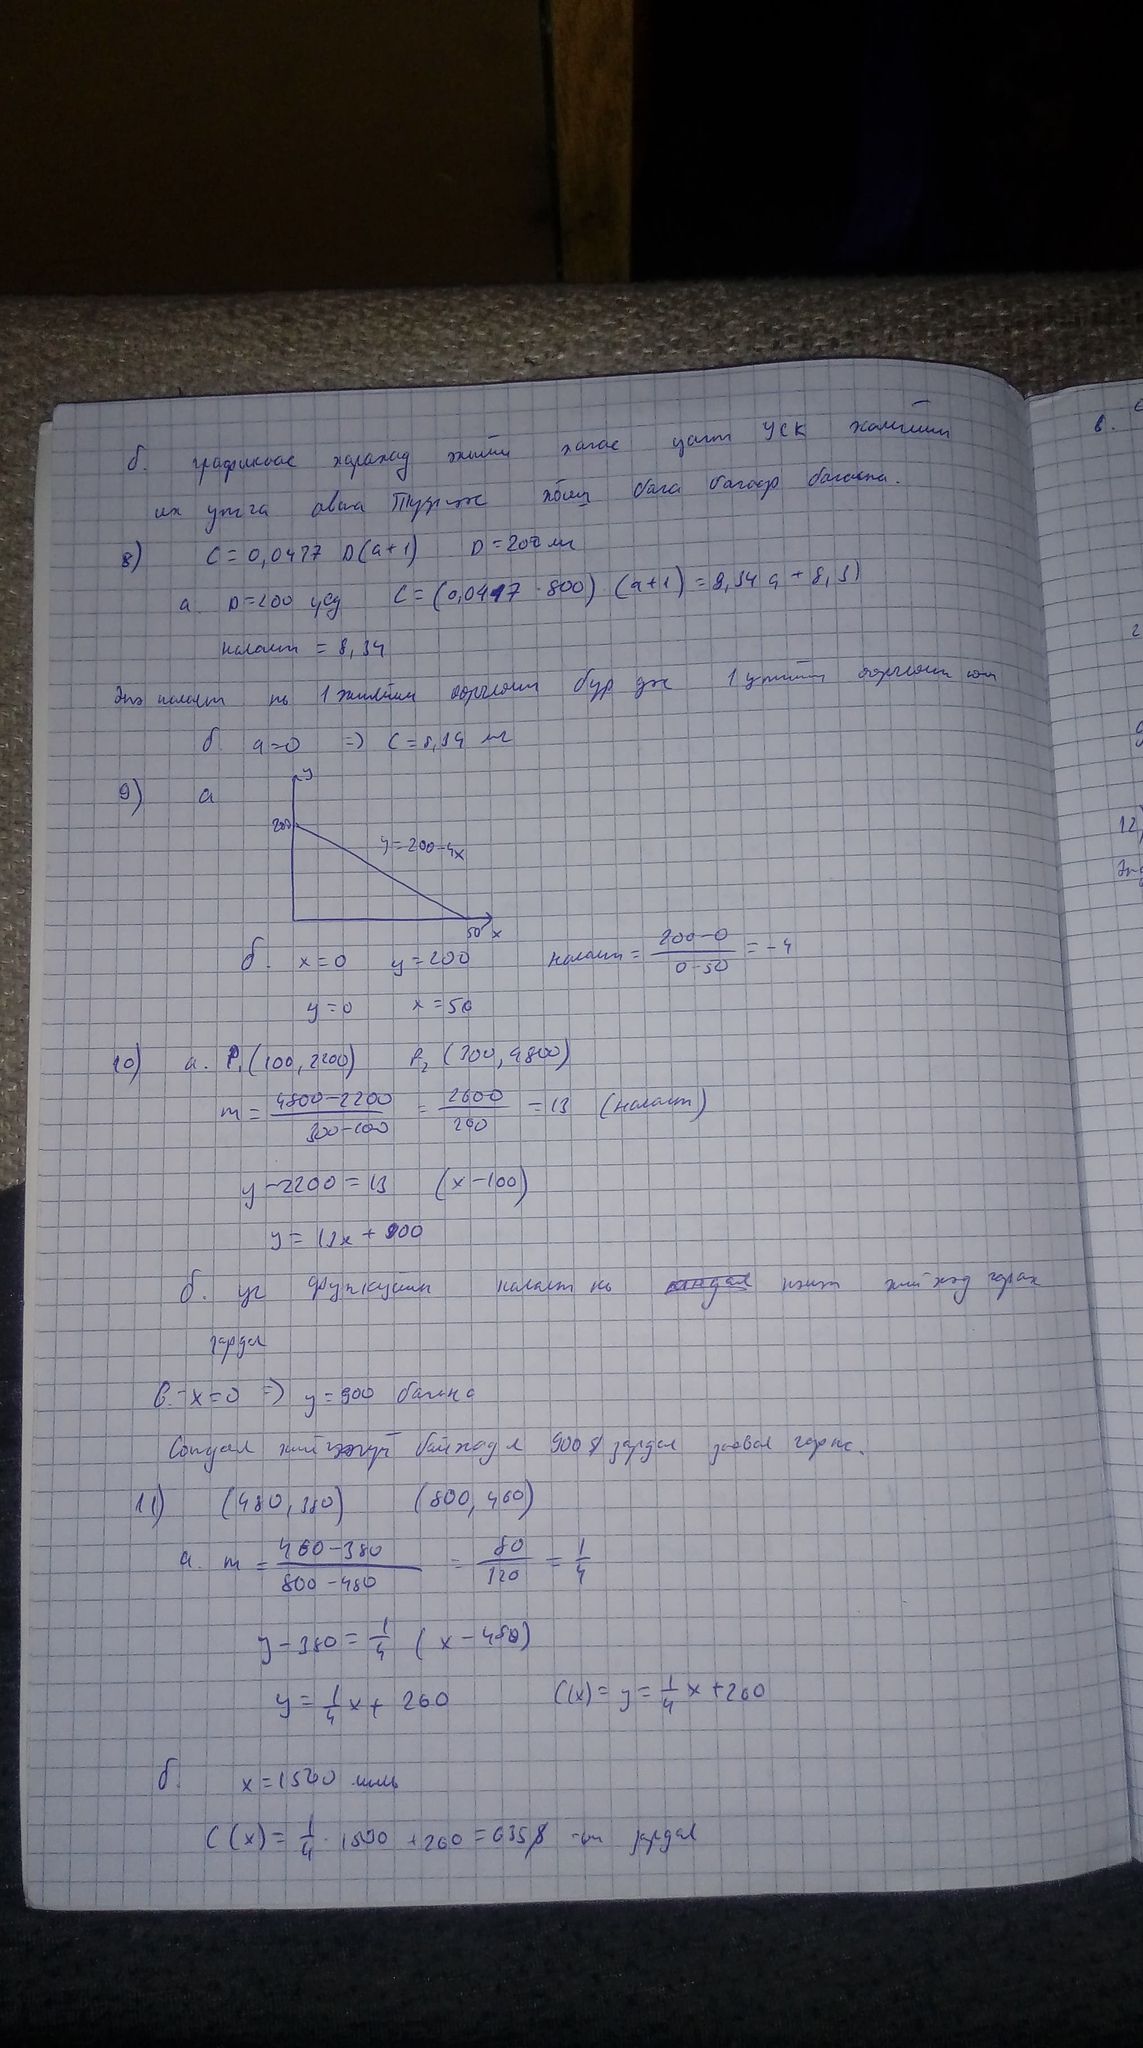 б. графикаас харахад жилийн хагас цагт УСК хамгийн
их утга авна Түүнээс хойш бага багаар багасна.
8) C = 0,0417 D(a+1) D = 200 мг
а. D=200 үед C = (0,0417 · 800) · (a+1) = 8,34 a + 8,3)
налалт = 8,34
Энэ налалт нь 1 жилийн өөрчлөлт бүр дэх 1 утгын өөрчлөлт юм
б. a=0 => C = 8,34 мг
9) а
y
200
y=200-4x
50 x
б. x=0 y=200 налалт = \frac{200-0}{0-50} = -4
y=0 x=50
10) а. P₁(100, 2200) P₂(300, 4800)
m = \frac{4800-2200}{300-100} = \frac{2600}{200} = 13 (налалт)
y-2200 = 13 (x-100)
y = 13x + 900
б. уг функцийн налалт нь нэгж хийхэд гарах
зардал
в. - x=0 => y=900 байна
Сандал хийхгүй байхад л 900$ зардал заавал гарна.
11) (480, 380) (800, 460)
а. m = \frac{460-380}{800-480} = \frac{80}{320} = \frac{1}{4}
y-380 = \frac{1}{4} (x-480)
y = \frac{1}{4}x + 260 C(x) = y = \frac{1}{4}x + 260
б. x=1500 миль
C(x) = \frac{1}{4} · 1500 + 260 = 635$ -ын зардал
в.
2
12)